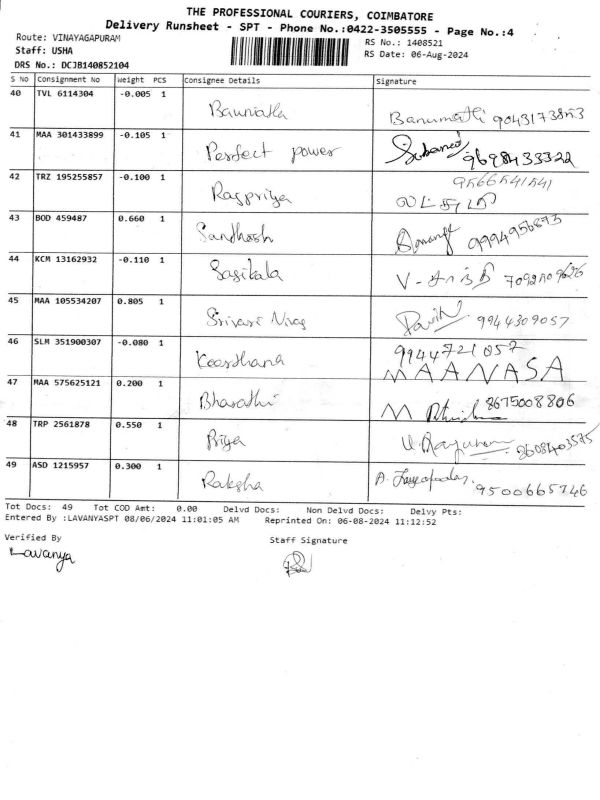 THE PROFESSIONAL COURIERS, COIMBATORE
Delivery Runsheet - SPT - Phone No.:0422-3505555 - Page No.:4
Route: VINAYAGAPURAM
Staff: USHA
DRS No.: DCJB140852104
RS No.: 1408521
RS Date: 06-Aug-2024
S No Consignment No Weight PCS Consignee Details Signature
40 TVL 6114304 -0.005 1
Banumathi
41 MAA 301433899 -0.105 1
Perfect power 9698433322
42 TRZ 195255857 -0.100 1
9566541541
Rajpriya
43 BOD 459487 0.660 1
Sandhosh 9994956873
44 KCM 13162932 -0.110 1
Sasikala V -
45 MAA 105534207 0.805 1
Srivari 9944309057
46 SLM 351900307 -0.080 1
9944721057
MAANASA
47 MAA 575625121 0.200 1
Bharathi M 8675008806
48 TRP 2561878 0.550 1
Priya 8608403575
49 ASD 1215957 0.300 1
Raksha A. 9500665746
Tot Docs: 49 Tot COD Amt: 0.00 Delvd Docs: Non Delvd Docs: Delvy Pts:
Entered By :LAVANYASPT 08/06/2024 11:01:05 AM Reprinted On: 06-08-2024 11:12:52
Verified By Staff Signature
Lavanya